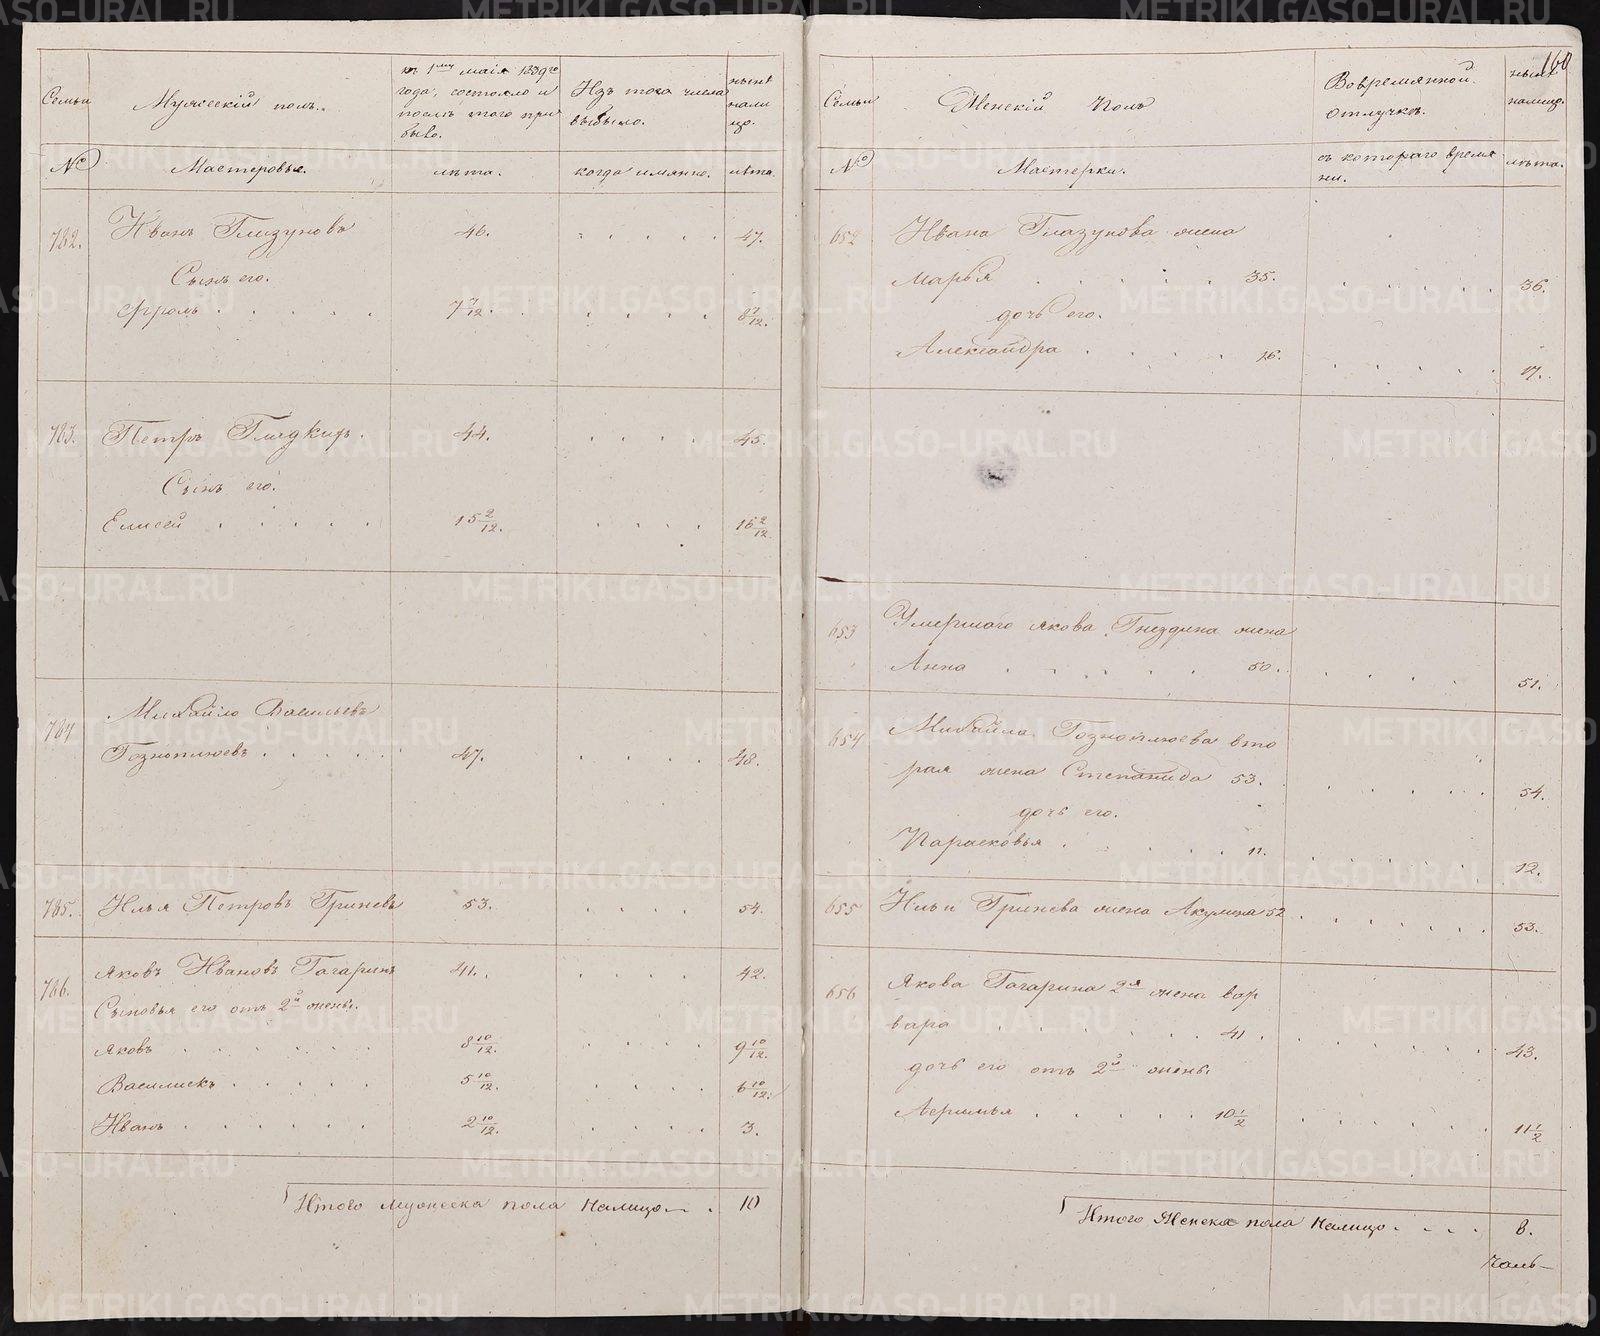 160
Семьи
Мужескій полъ.
къ 1му маія 1839го
года, состояло и
послѣ того при
было.
Изъ того числа
выбыло.
нынѣ
нали
цо.
№
Мастеровые.
лѣта.
когда имянно.
лѣта
782.
Иванъ Глазуновъ
46.
47.
Сынъ его.
Фролъ
7 7/12.
8 7/12.
783.
Петръ Гладкихъ.
44.
45.
Сынъ его.
Елисей
15 2/12.
16 2/12
784
Михайло Васильевъ
Гозноплюевъ
47.
48.
785.
Илья Петровъ Гриневъ
53.
54.
786.
Яковъ Ивановъ Гагаринъ
41.
42.
Сыновья его отъ 2й жены.
Яковъ
8 10/12.
9 10/12.
Василискъ
5 10/12.
6 10/12.
Иванъ
2 10/12.
3.
Итого мужеска пола налицо
10
Семьи
Женскій Полъ
Вовремянной
отлучкѣ.
нынѣ
налицо.
№
Мастерки.
съ котораго время
ни.
лѣта.
652
Ивана Глазунова жена
Марья
35.
36.
дочь его.
Александра
16.
17.
653
Умершаго Якова Гнездина жена
Анна
50.
51.
654
Михайла Гозноплюева вто
рая жена Степанида
53.
54.
дочь его.
Парасковья
11.
12.
655
Ильи Гринева жена Акулина 52
53.
656
Якова Гагарина 2я жена Вар
вара
41
43.
дочь его отъ 2й жены.
10 1/2
11 1/2
Итого Женска пола налицо
8.